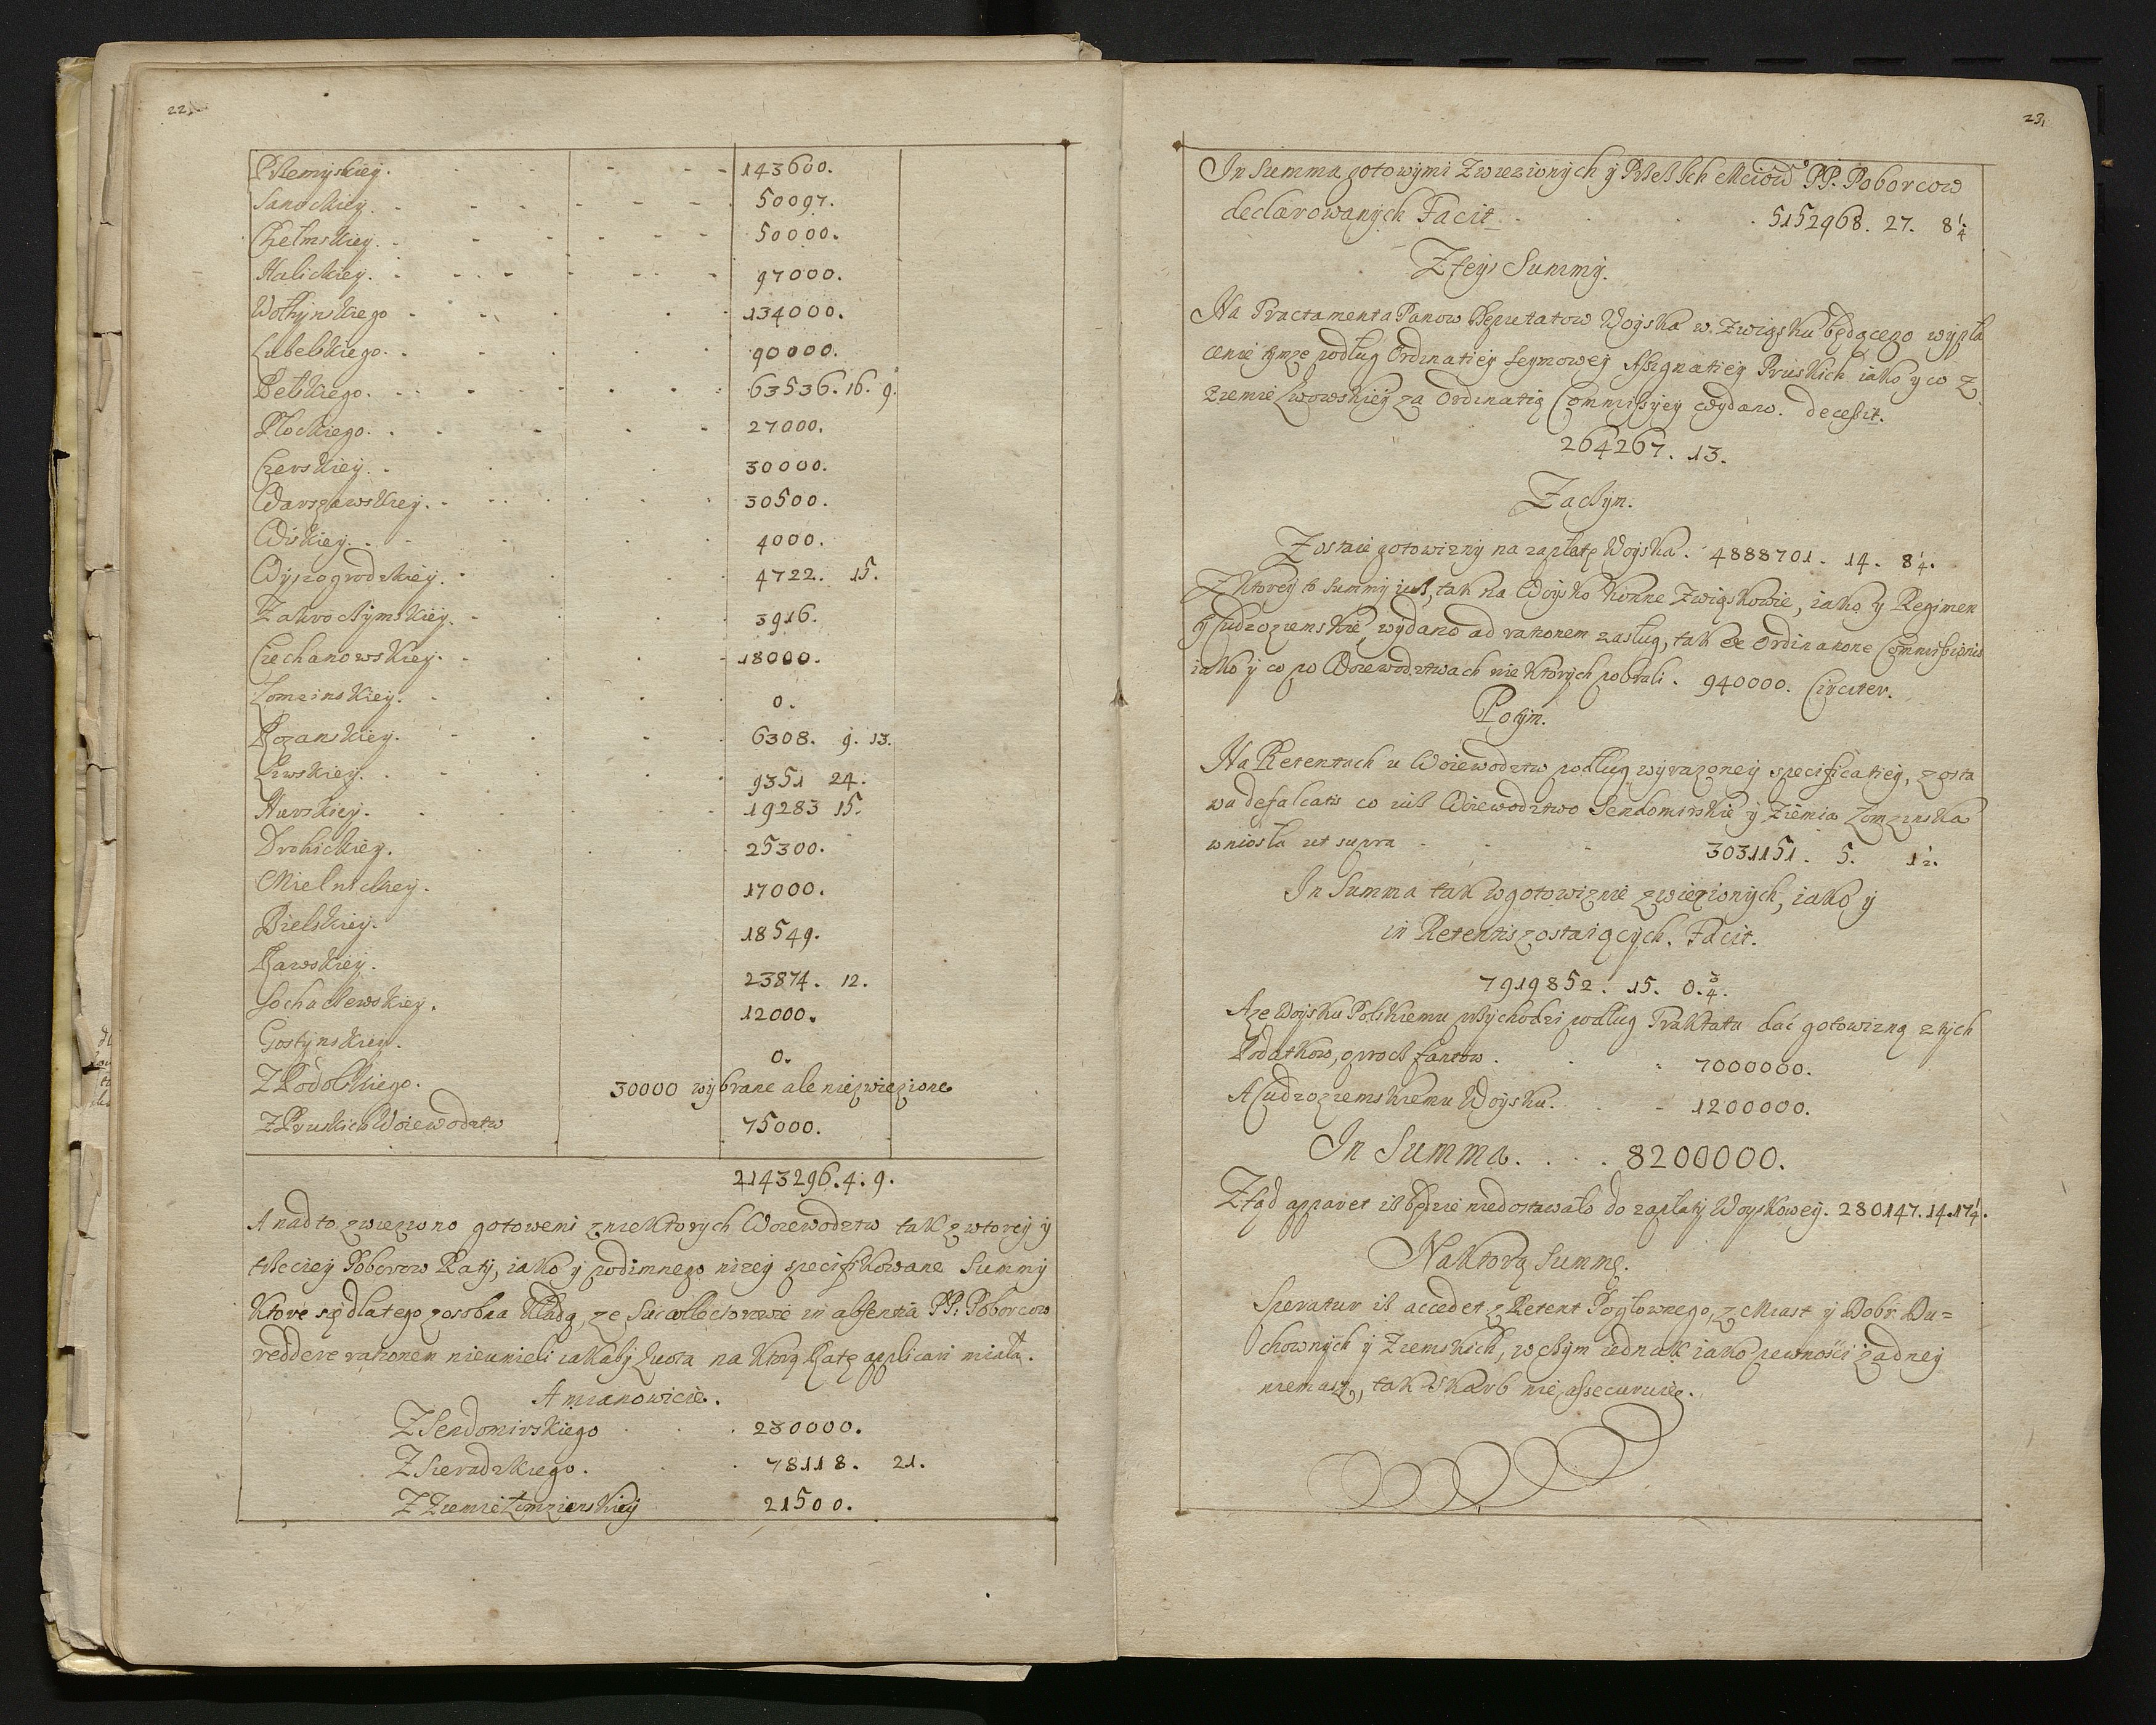 22.
Przemyskiey. 143600.
Sanockiey. 50097.
Chełmskiey. 50000.
Halickiey. 97000.
Wołhynskiego 134000.
Lubelskiego. 90000.
Bełskiego. 63536. 16. 9.
Płockiego. 27000.
Czerskiey. 30000.
Warszawskiey. 30500.
Wiskiey. 4000.
Wyszogrodzkiey. 4722. 15.
Zakroczymskiey. 3916.
Ciechanowskiey. 18000.
Łomzinskiey. 0.
Rozanskiey. 6308. 9. 13.
Liwskiey. 9351 24.
Nurskiey. 19283 15.
Drohickiey. 25300.
Mielnickiey. 17000.
Bielskiey. 18549.
Rawskiey. 23874. 12.
Sochaczewskiey. 12000.
Gostynskiey. 0.
Z Podolskiego. 30000 wybrane ale nie zwiezione
Z Pruskich Woiewodztw 75000.
2143296. 4. 9.
A nad to zwieziono gotowemi z niektorych Woiewodztw tak z wtorey y
trzeciey Poborow Raty, iako y podimnego nizey specifikowane Summy
Ktore się dla tego zosobna kładą, ze Succollectorowie in absentia PP. Poborcow
reddere rationem nieumieli iakaby kwota na ktorą Ratę applicari miała.
A mianowicie.
Z Sendomirskiego 230000.
Z Sieradzkiego. 78118. 21.
Z Ziemie Łomzienskiey 21500.
23.
In Summa gotowymi zwiezionych y Przesz Ich Mciow PP. Poborcow
declarowanych Facit 5152968. 27. 8 1/4
Z teyze Summy.
Na Tractamenta Panow Deputatow Woyska w Zwiąsku będącego wypła
cenie tymze podług Ordinatiey Seymowey Assignatiey Pruskich iako y co z
Ziemie Lwowskiey za Ordinatią Commissyey wydano. decessit.
264267. 13.
Zaczym.
Zostaie gotowizny na zapłatę Woyska. 4888701. 14. 8 1/4.
Z ktorey to Summy iusz, tak na Woysko konne Zwiąskowie, iako y Regimen
y Cudzoziemskie wydano ad rationem zasług, tak ex Ordinatione Commissionis
iako y co po Woiewodztwach niektorych pobrali. 940000. Circiter.
Potym.
Na Retentach u Woiewodztw podług wyrazoney specificatiey, zosta
wa defalcatis co iusz Woiewodztwo Sendomirskie y Ziemia Łomzinska
wniosła ut supra 3031151. 5. 1 1/2.
In Summa tak w gotowiznie zwiezionych, iako y
in Retentis zostaiących. Facit.
7919852. 15. 0. 3/4.
A ze Woysku Polskiemu przychodzi podług Traktatu dać gotowizną z tych
Podatkow, oprocz fantow. 7000000.
A Cudzoziemskiemu Woysku. 1200000.
In Summa. 8200000.
Ztąd apparet isz będzie niedostawało do zapłaty Woyskowey. 280147. 14. 17 1/4.
Na ktorą Summę.
Speratur isz accedet z Retent Pogłownego, z Miast y Dobr Du=
chownych y Ziemskich, w czym iednak iako pewności zadney
niemasz, tak Skarb nie assecuruie.